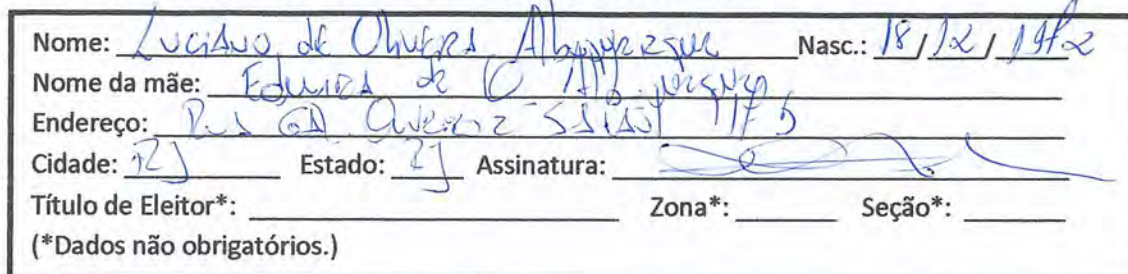 Nome: Luciano de Oliveira Albuquerque Nasc.: 18/12/1972
Nome da mãe: de O Albuquerque
Endereço: Rua 175
Cidade: RJ Estado: RJ Assinatura:
Título de Eleitor*: Zona*: Seção*:
(*Dados não obrigatórios.)